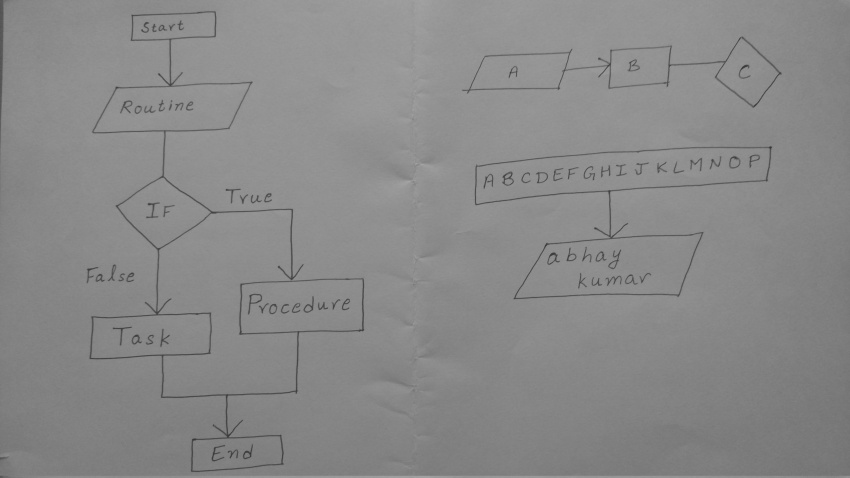 Start
Routine
IF
True
False
Procedure
Task
End
A
B
C
ABCDEFGHIJKLMNOP
abhay
kumar